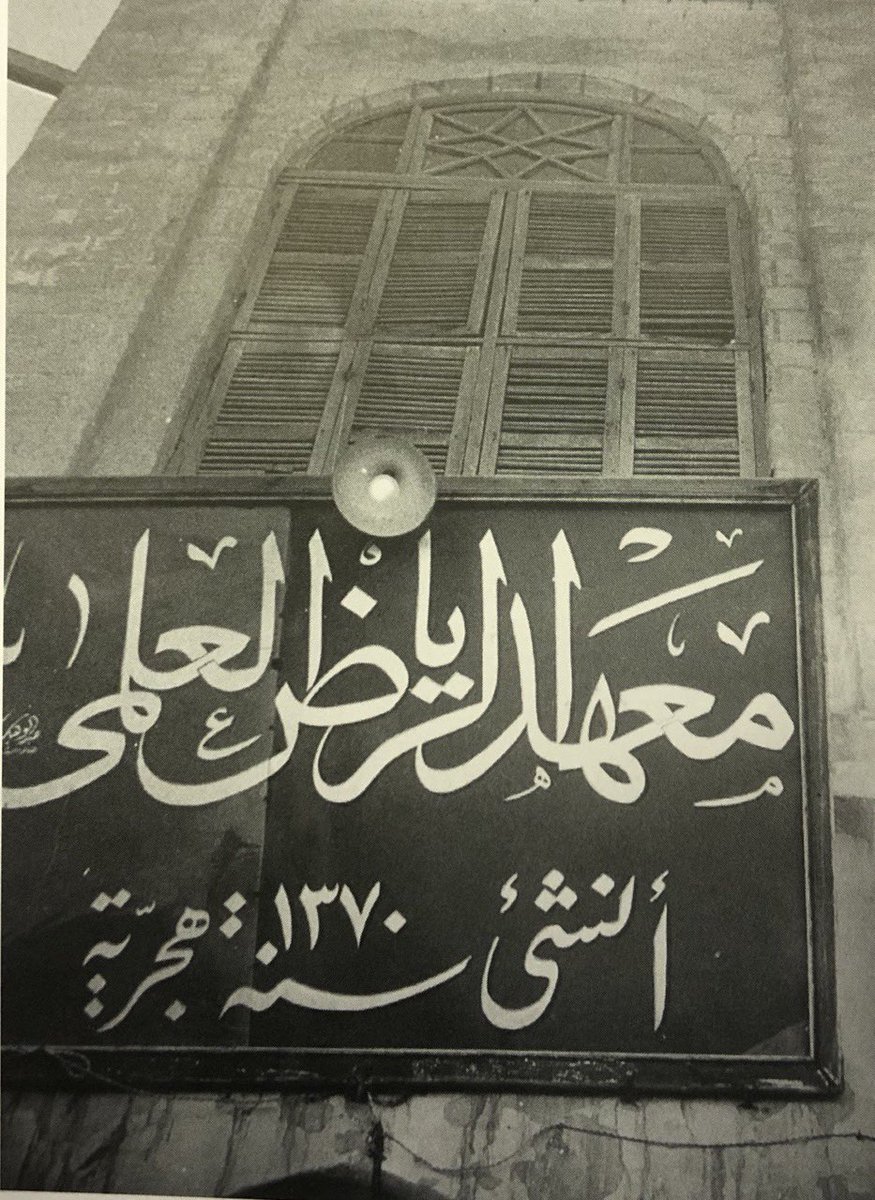 معهد الرياض العلمي
أنشئ سنة ١٣٧٠ هجرية